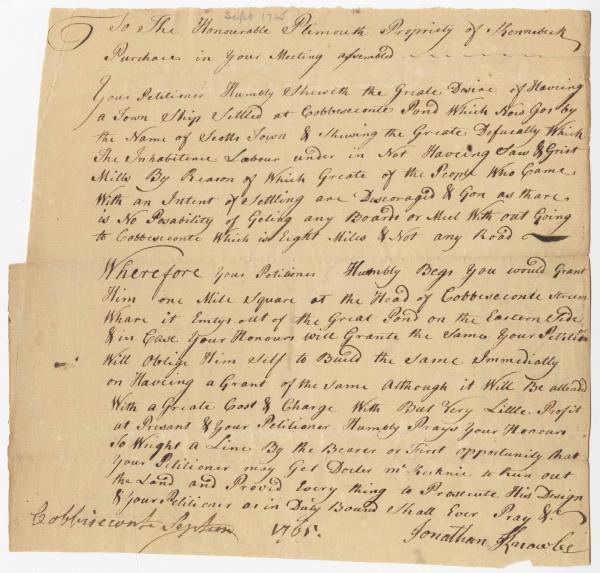 Sept 1765
To The Honourable Plimouth Propriety of Kennebeck
Purchase in Your Meeting assembled
Your Petitioner Humbly Sheweth the Greate Desire of Haveing
a Town Ship Settled at Cobbeseconte Pond Which Now Gos by
the Name of Scotts Town & Shewing the Greate Defucalty Which
The Inhabitence Labour under in Not Haveing Saw & Grist
Mills By Reason of Which Greate of the People Who Came
With an Intent of Settling are Discoraged & Gon as thare
is No Posability of Geting any Boards or Meel With out Going
to Cobbeseconte Which is Eight Miles & Not any Road
Wherefore Your Petitioner Humbly Begs You would Grant
Him one Mile Square at the Head of Cobbeseconte Streem
Whare it Emtys out of the Great Pond on the Eastern Side
& in Case Your Honours will Grante the Same Your Petition
Will Oblige Him Self to Build the Same Immediatly
on Haveing a Grant of the Same Although it Will Be attend
With a Greate Cost & Charge With But Very Little Profit
at Presant & Your Petitioner Humbly Prays Your Honours
To Wright a Line By the Bearer or First opportunity that
Your Petitioner may Get Docter mcKechnie to Run out
the Land and Provid Every thing to Prosecute His Design
& Your Petitioner as in Duty Bound Shall Ever Pray &c
Cobbiseconte Septem 1765. Jonathan Knowles